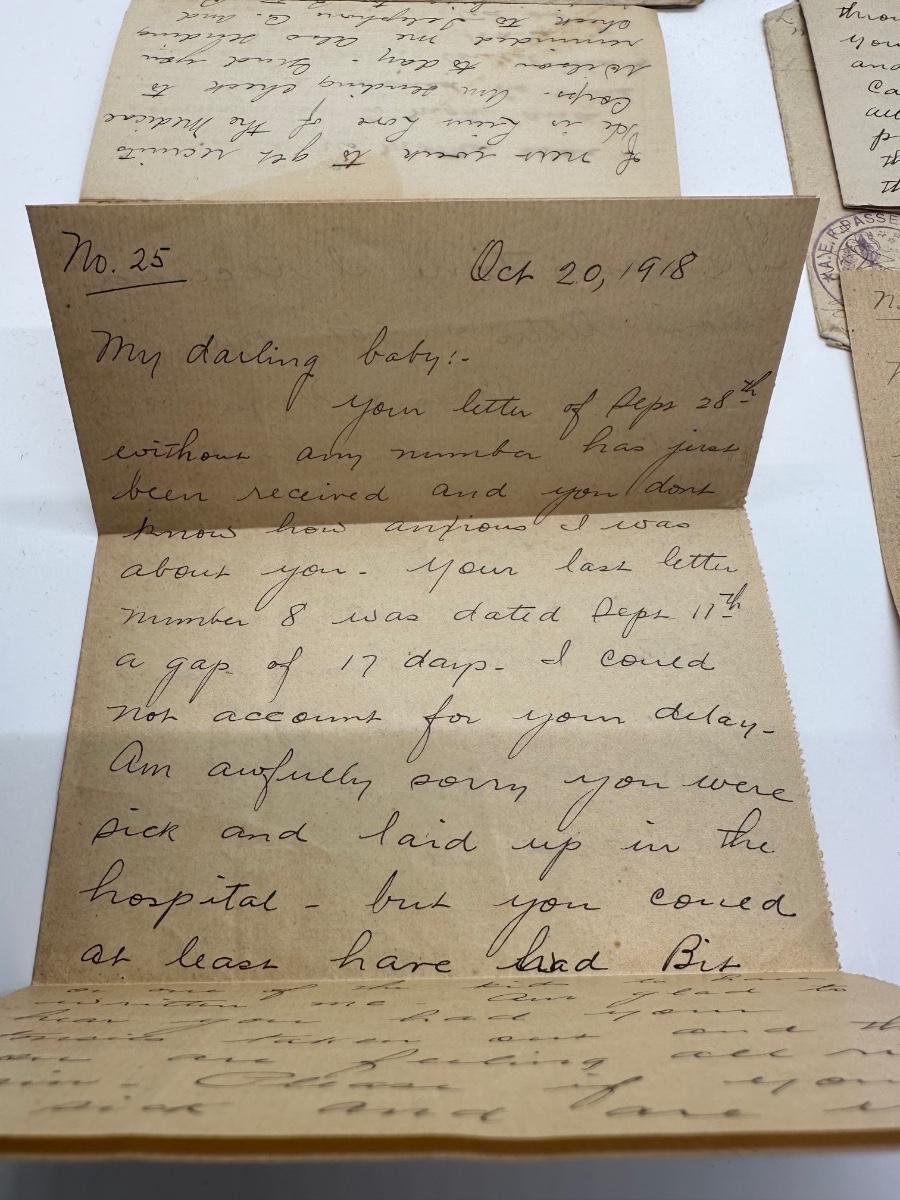 of new work to get recruits
He is Lieu here of the Medicine
Corps. Am sending check to
Wilson to day - Glad you
reminded me also sending
check to Telephone Co. and
throu
you
and
Ca
A.E.F. PASSE
No. 25
Oct 20, 1918
My darling baby:-
Your letter of Sept 28th
without any number has just
been received and you dont
know how anxious I was
about you - Your last letter
number 8 was dated Sept 11th
a gap of 17 days - I could
not account for your delay -
Am awfully sorry you were
sick and laid up in the
hospital - but you could
at least have had Bit
or one of the kids to have
written me - Am glad to
hear you had your
tonsils taken out and th
are feeling all r
in - Please if you
sick and are